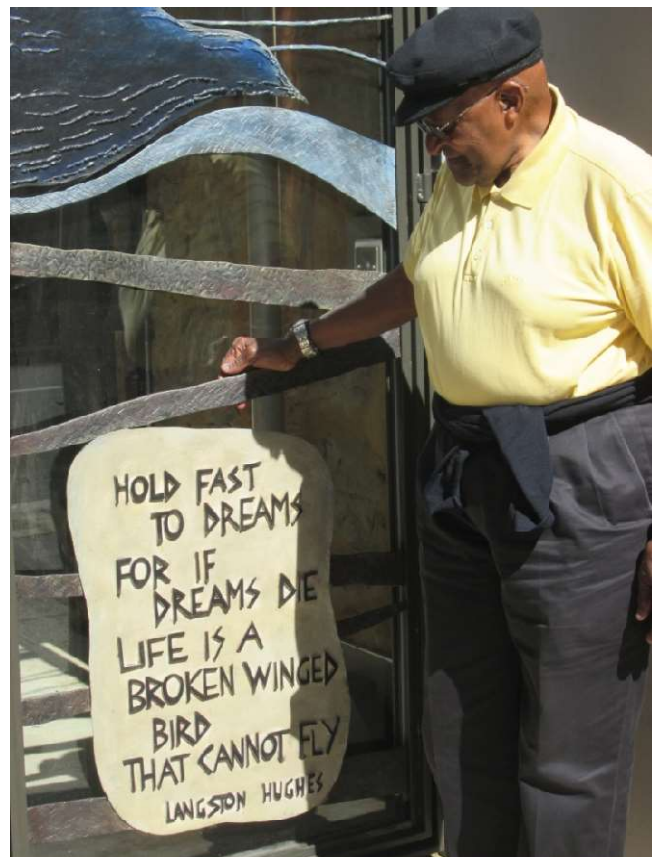 HOLD FAST
TO DREAMS
FOR IF
DREAMS DIE
LIFE IS A
BROKEN WINGED
BIRD
THAT CANNOT FLY
LANGSTON HUGHES